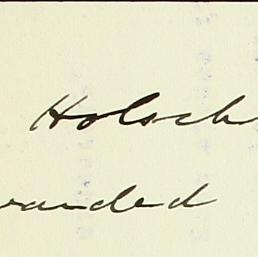 Holsch
wanded